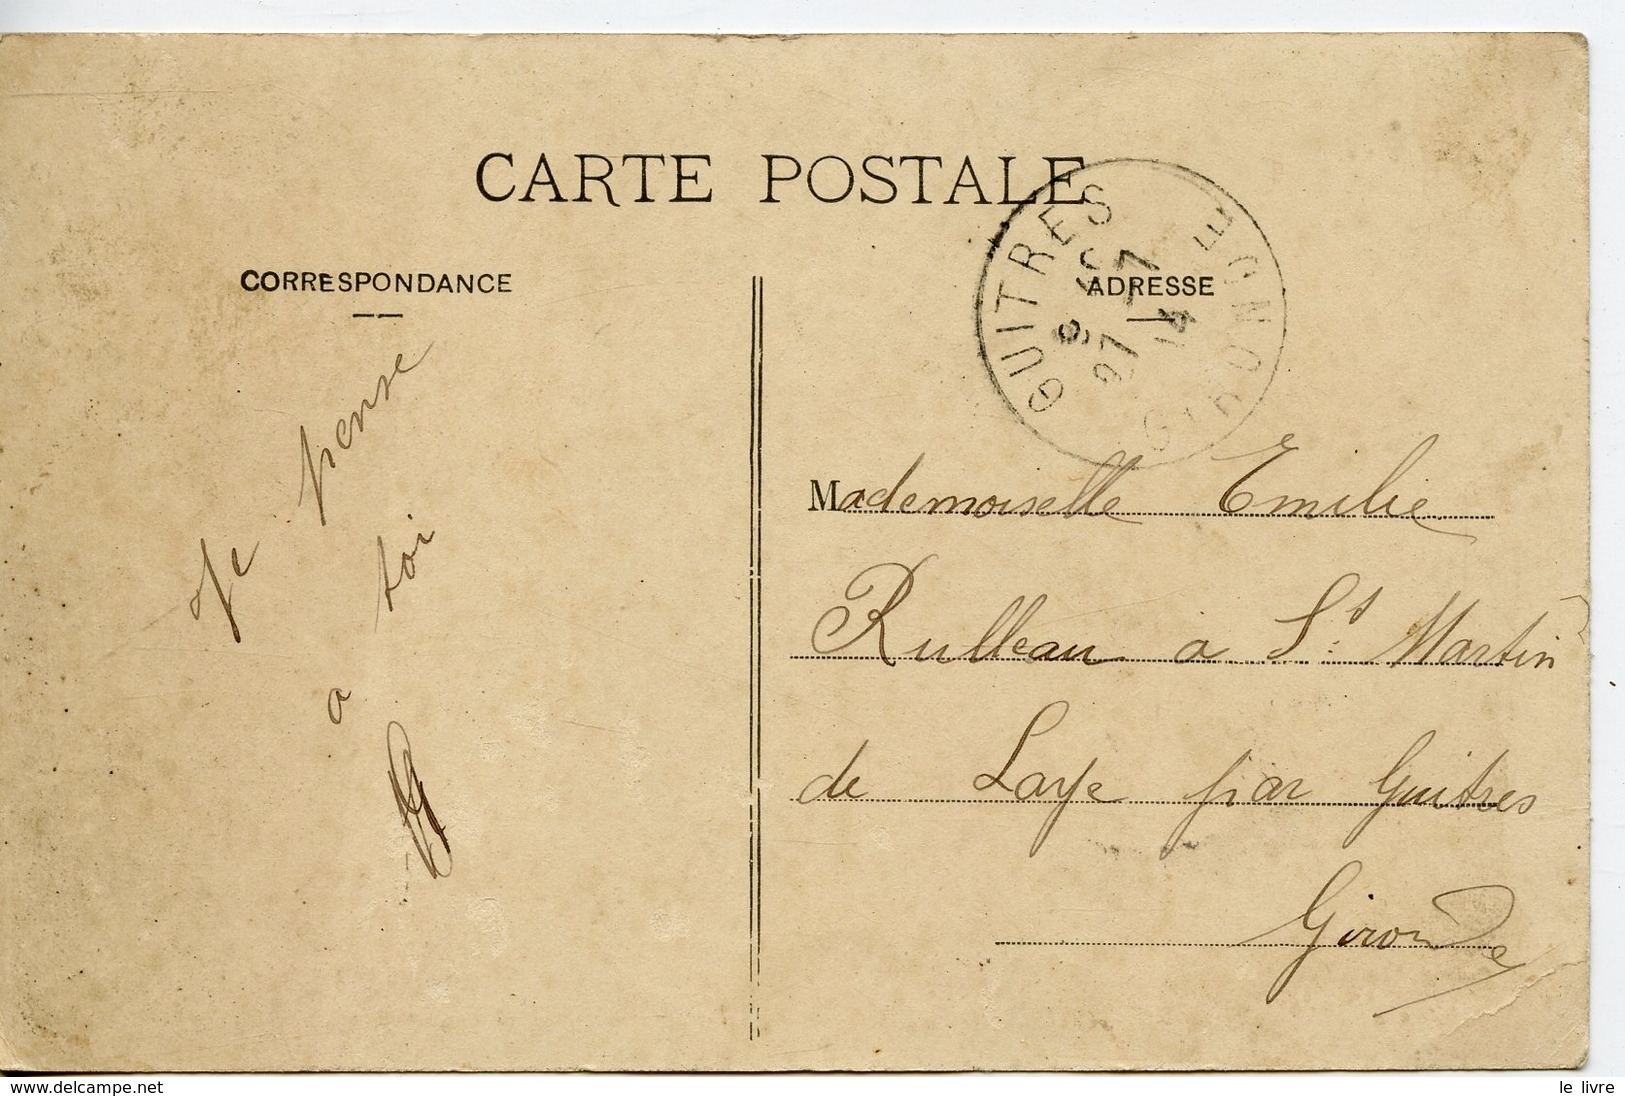 CARTE POSTALE
CORRESPONDANCE
ADRESSE
GUITRES
GIRONDE
27 - 7
14
Je pense
a toi
a
Mademoiselle Emilie
Rulleau a St Martin
de Laye par Guitres
Gironde
delcampe.net
le livre